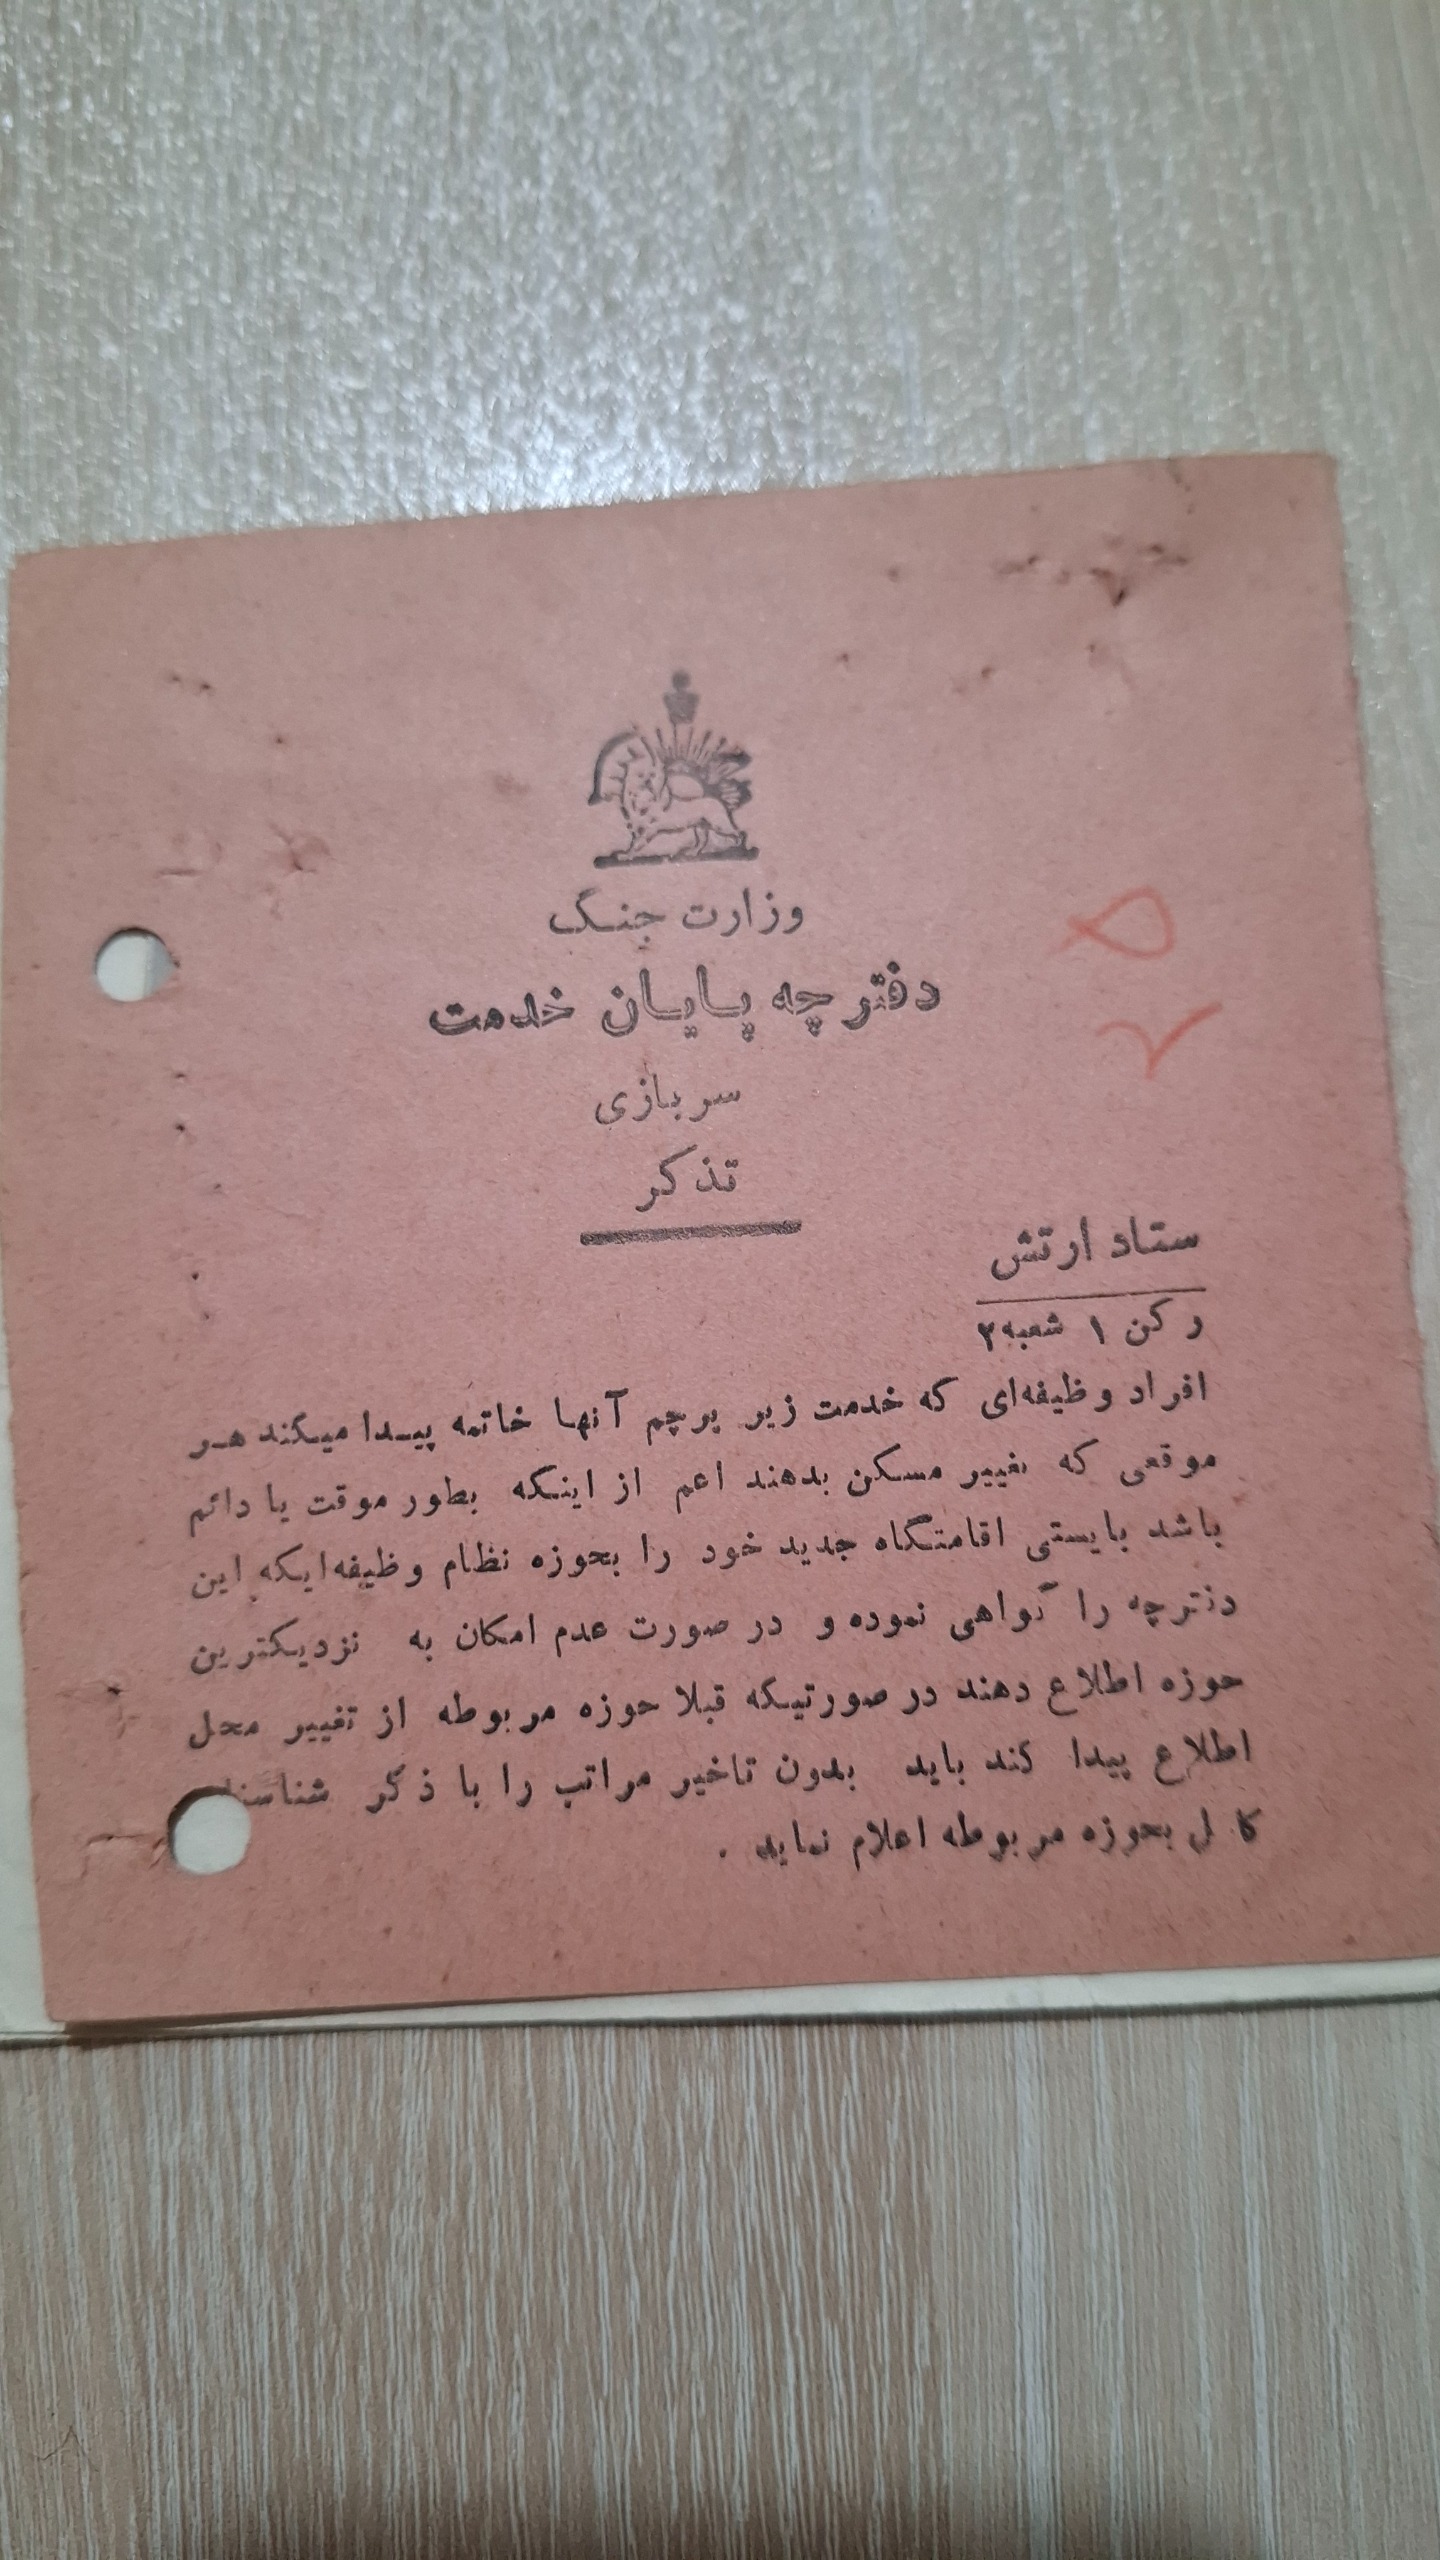 وزارت جنگ
دفترچه پایان خدمت
سربازی
تذکر
ستاد ارتش
رکن ۱ شعبه ۲
افراد وظیفه‌ای که خدمت زیر پرچم آنها خاتمه پیدا میکند هر
موقعی که تغییر مسکن بدهند اعم از اینکه بطور موقت یا دائم
باشد بایستی اقامتگاه جدید خود را بحوزه نظام وظیفه‌ایکه این
دفترچه را گواهی نموده و در صورت عدم امکان به نزدیکترین
حوزه اطلاع دهند در صورتیکه قبلا حوزه مربوطه از تغییر محل
اطلاع پیدا کند باید بدون تاخیر مراتب را با ذکر
کامل بحوزه مربوطه اعلام نماید .